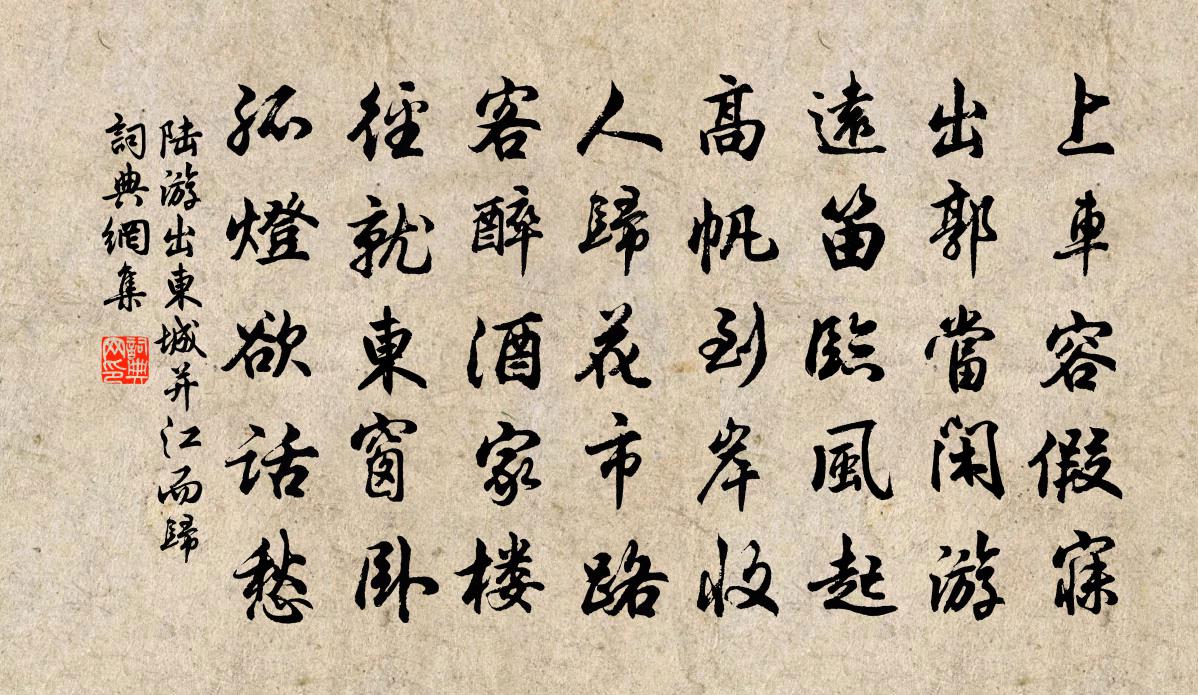 上車容假寐
出郭當閑游
遠笛臨風起
高帆到岸收
人歸花市路
客醉酒家楼
徑就東窗卧
孤燈欲話愁
陆游出東城并江而歸
詞典網集
詞典网印